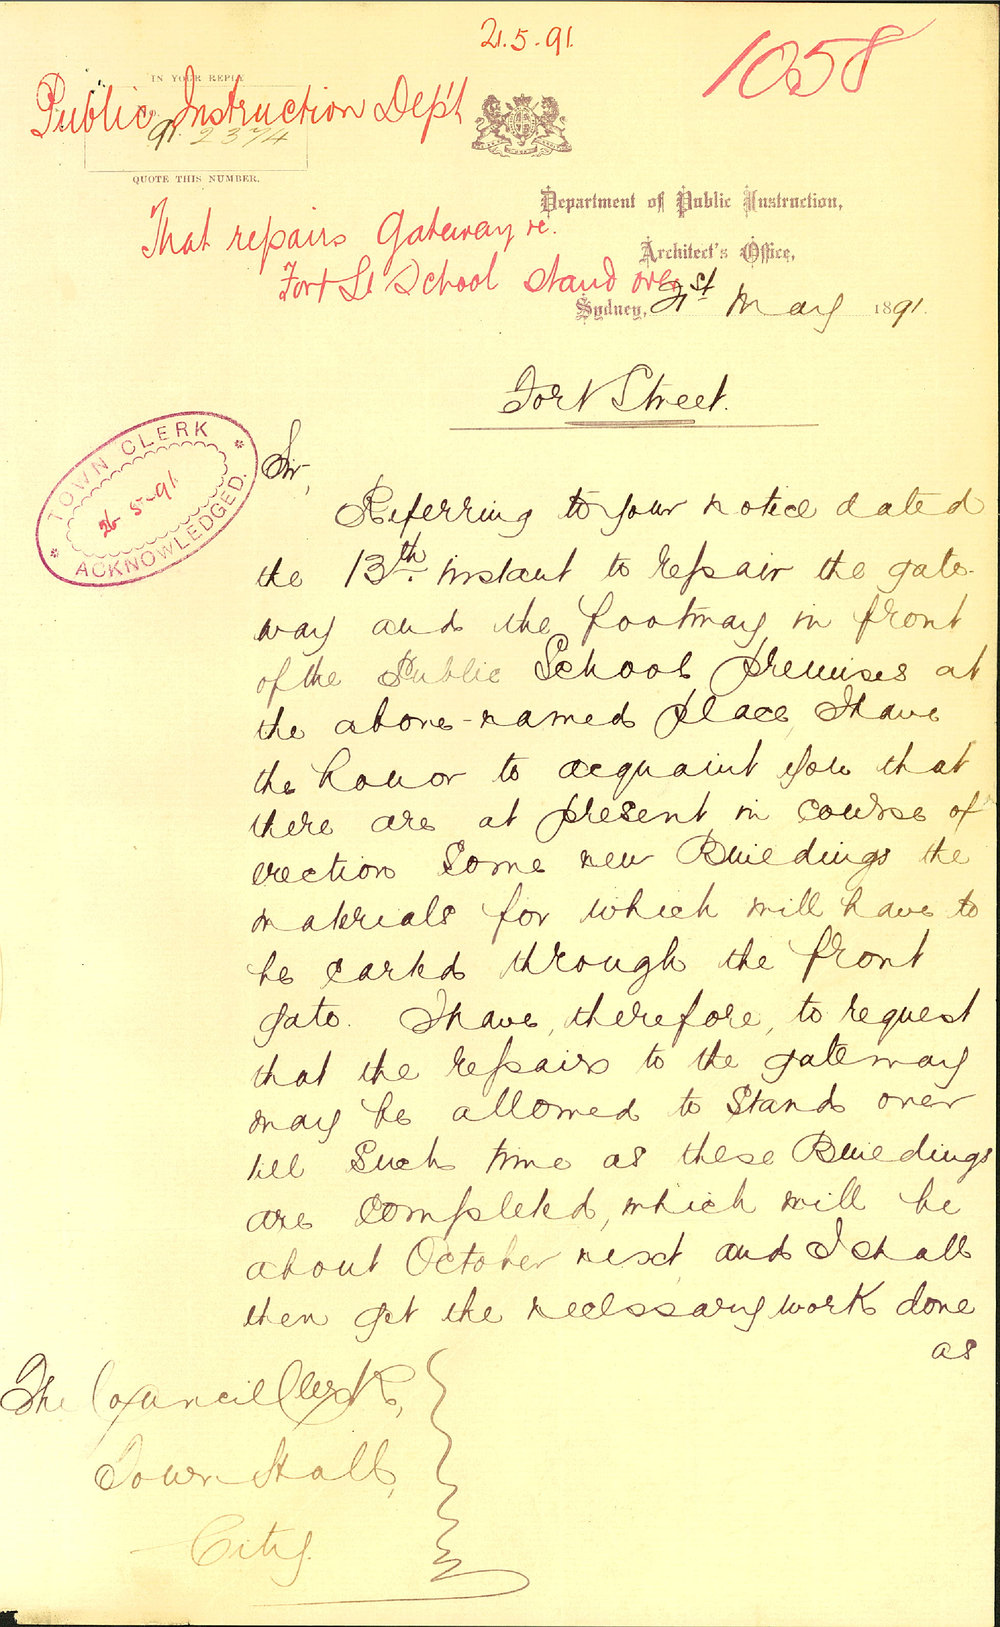 21.5.91.
1058
IN YOUR REPLY
Public Instruction Dep't
91. 2374
QUOTE THIS NUMBER.
Department of Public Instruction,
That repairs Gateway re.
Architect's Office,
Fort St School stand over
Sydney, 21st May 1891.
Fort Street.
TOWN CLERK
26-5-91
ACKNOWLEDGED.
Sir,
Referring to your notice dated
the 13th. instant to repair the gate-
way and the footway in front
of the Public School premises at
the above-named place, I have
the honor to acquaint you that
there are at present in course of
erection some new Buildings the
materials for which will have to
be carted through the front
gate. I have, therefore, to request
that the repairs to the gateway
may be allowed to stand over
till such time as these Buildings
are completed, which will be
about October next and I shall
then get the necessary work done
as
The Council Clerk,
Town Hall,
City.